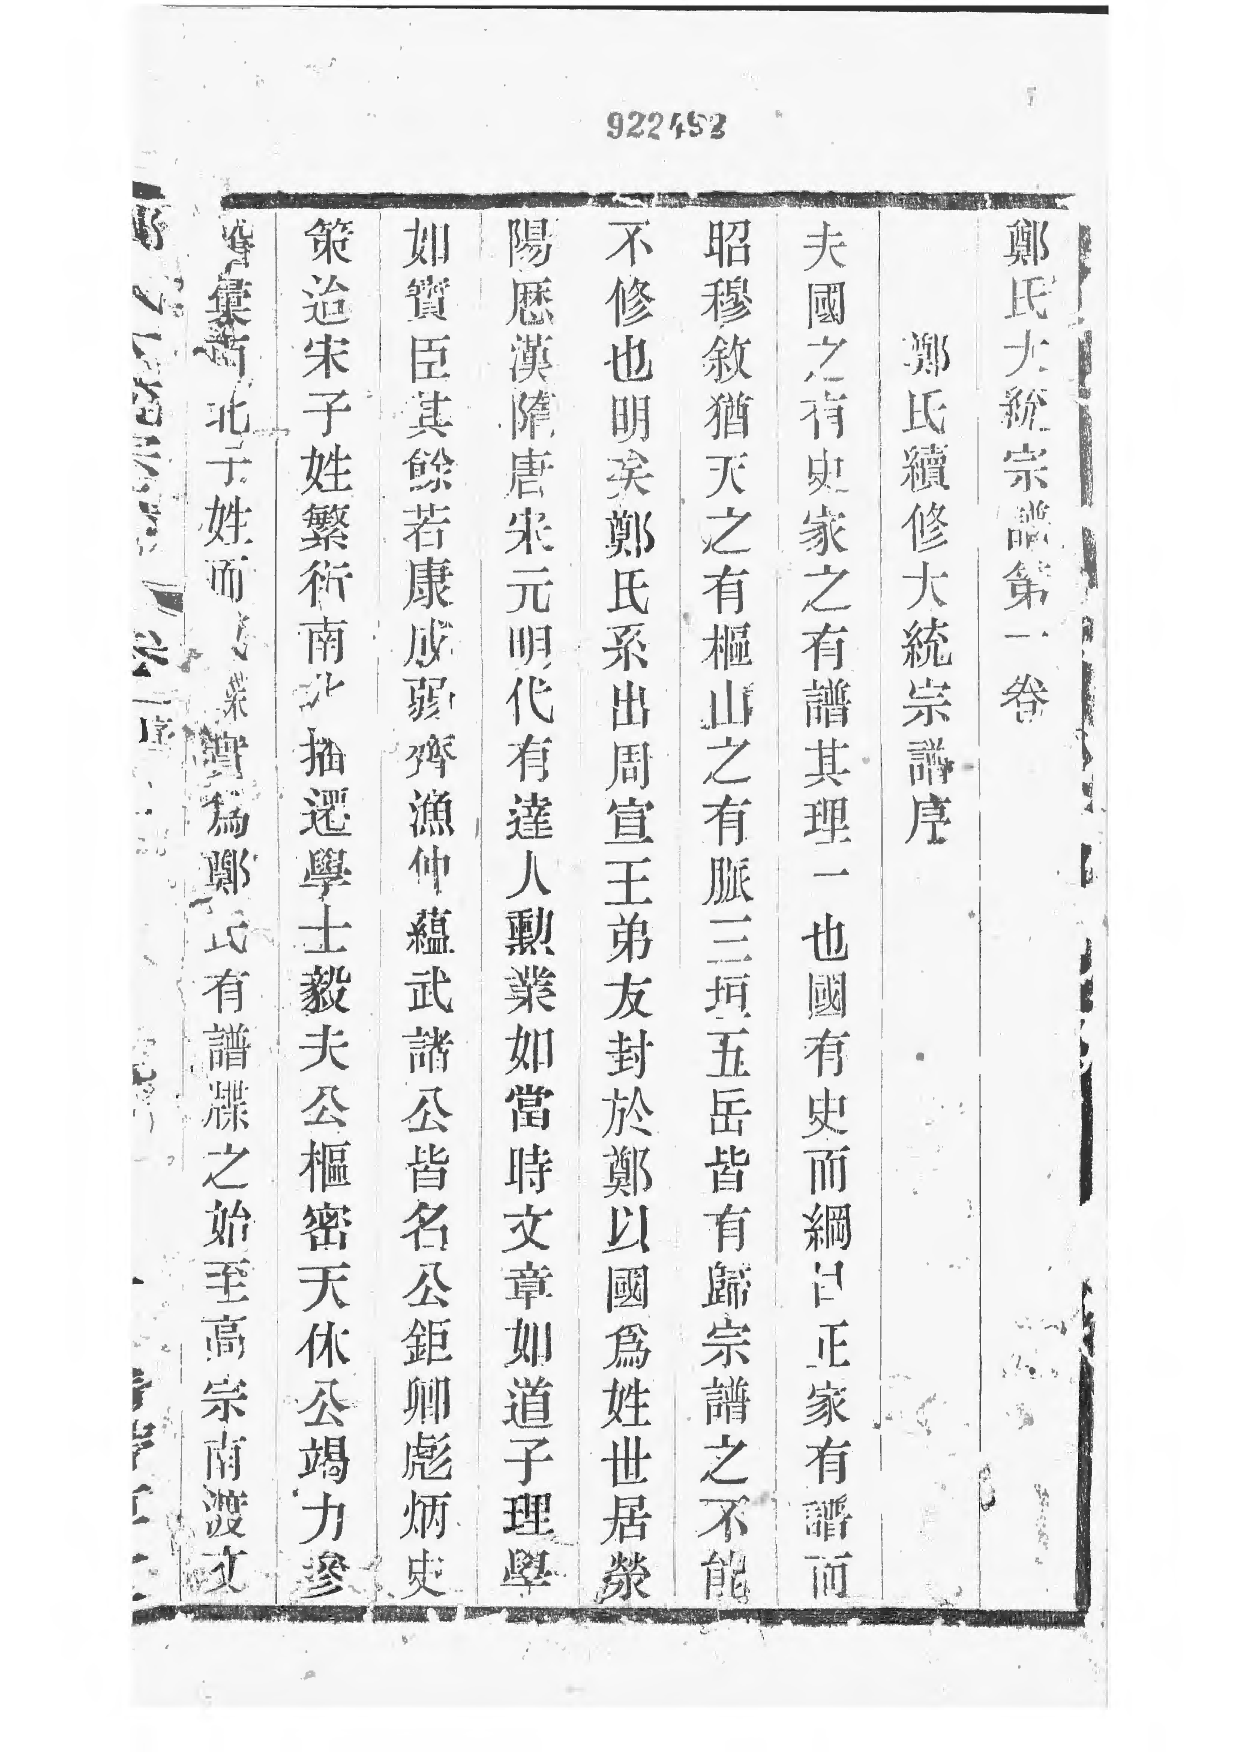 922453
鄭氏大統宗譜第一卷
鄭氏續修大統宗譜序
夫國之有史家之有譜其理一也國有史而綱呂正家有譜而
昭穆敘猶天之有樞山之有脈三垣五岳皆有歸宗譜之不能
不修也明矣鄭氏系出周宣王弟友封於鄭以國爲姓世居滎
陽歷漢隋唐宋元明代有達人勳業如當時文章如道子理學
如寶臣其餘若康成弱齊漁仲蘊武諸公皆名公鉅卿彪炳史
策迨宋子姓繁衍南北播遷學士毅夫公樞密天休公竭力參
稽彙南北子姓而成實爲鄭氏有譜牒之始至高宗南渡文
卷一序